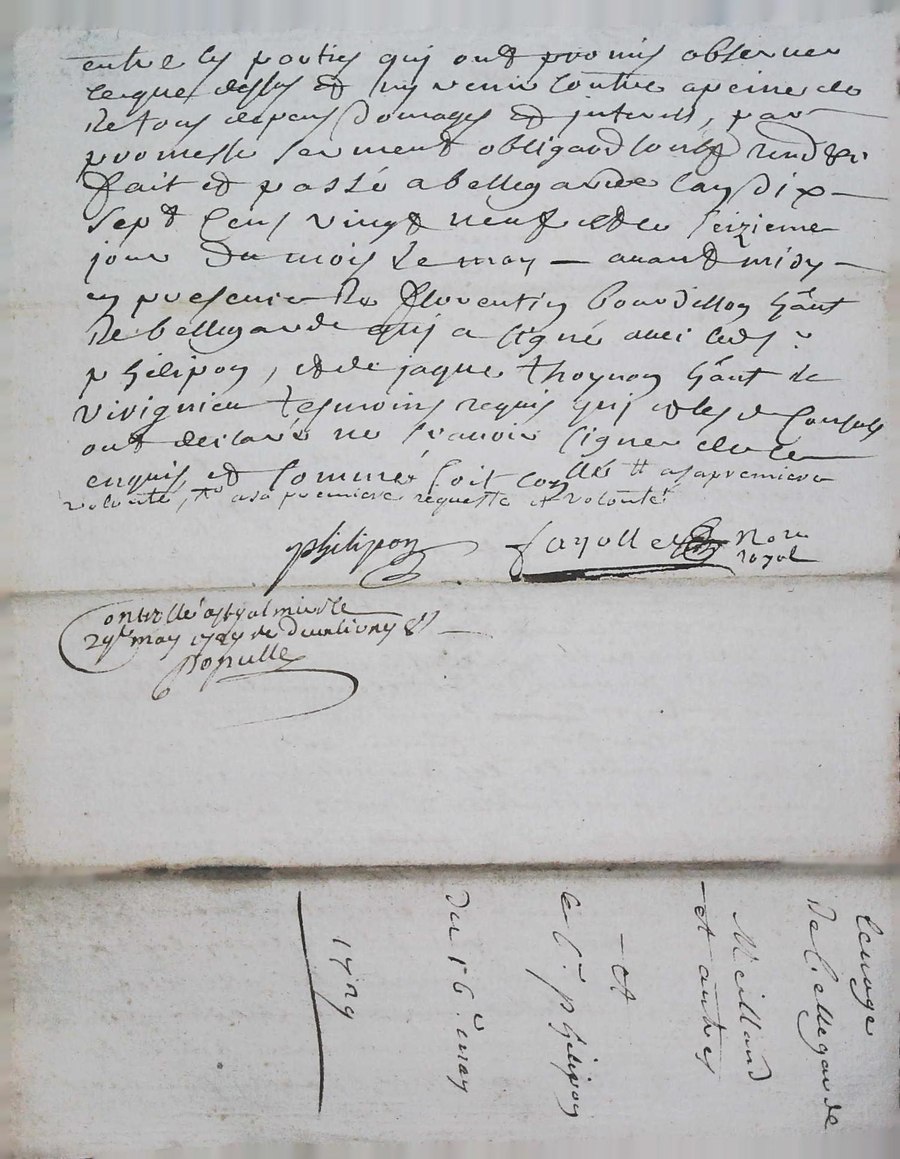 entre les parties qui ont promis observer
ce que dessus et ny venir contre a peine de
de tous depens domages et interets, par
promesse serment obligaod soubz rend &c
fait et passé a bellegarde lan dix
sept cens vingt neuf et le seizieme
jour du mois de may — avant midy —
en presence de florentin bourdillon hãnt
de bellegarde qui a signé avec led s.r
philipon, et de jaque thoynon hãnt de
virignieu tesmoins requis qui et les d consuls
ont declaré ne scavoir signer de ce
enquis et sommé soit conllé tt a sa premiere
volonté, tt a sa premiere requeste et volonté
philipon fayolle Nore
royal
Controllé a st galmier le
29e may 1729 re douze livres &c
Populle
lenage
de bellegarde
Meilland
— et autres
— et
le s.r philipon
du 16.e may
1729